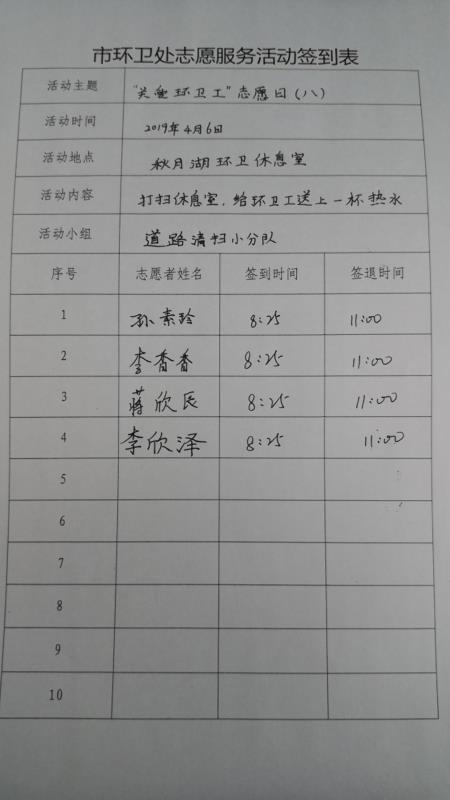 市环卫处志愿服务活动签到表
活动主题 "关爱环卫工"志愿日(八)
活动时间 2019年4月6日
活动地点 秋月湖环卫休息室
活动内容 打扫休息室,给环卫工送上一杯热水
活动小组 道路清扫小分队
序号 志愿者姓名 签到时间 签退时间
1 孙素玲 8:25 11:00
2 李香香 8:25 11:00
3 蒋欣辰 8:25 11:00
4 李欣泽 8:25 11:00
5
6
7
8
9
10